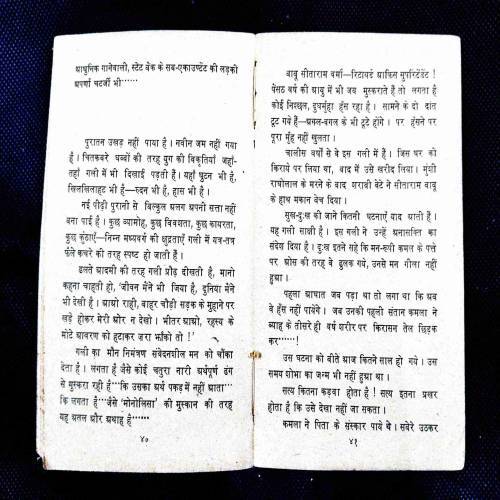 आधुनिक गानेवाली, स्टेट बेंक के सब-एकाउण्टेंट की लड़की
अपर्णा चटर्जी भी······
पुरातन उखड़ नहीं पाया है। नवीन जम नहीं गया
है। चितकबरे धब्बों की तरह युग की विकृतियां जहां-
तहां गली में भी दिखाई पड़ती हैं। यहाँ घुटन भी है,
खिलखिलाहट भी है—रुदन भी है, हास भी है।
नई पीढ़ी पुरानी से बिल्कुल अलग अपनी सत्ता नहीं
बना पाई है। कुछ व्यामोह, कुछ विवशता, कुछ कायरता,
कुछ कुंठाएँ—निम्न मध्यवर्ग की क्षुद्रताएँ गली में यत्र-तत्र
फैले कचरे की तरह स्पष्ट हो जाती हैं।
ढलते आदमी की तरह गली प्रौढ़ दीखती है, मानो
कहना चाहती हो, 'जीवन मैंने भी जिया है, दुनिया मैंने
भी देखी है। आओ राही, बाहर चौड़ी सड़क के मुहाने पर
खड़े होकर मेरी ओर न देखो। भीतर आओ, रहस्य के
मोटे आवरण को हटाकर जरा झाँको तो!'
गली का मौन निमंत्रण संवेदनशील मन को चौंका
देता है। लगता है जैसे कोई चतुरा नारी अर्थपूर्ण ढंग
से मुस्करा रही है···कि उसका अर्थ पकड़ में नहीं आता···
कि लगता है···जैसे 'मोनोलिसा' की मुस्कान की तरह
यह अतल और अथाह है······
४०
बाबू सीताराम वर्मा—रिटायर्ड आफिस सुपरिंटेंडेंट!
पैंसठ वर्ष की आयु में भी जब मुस्कराते हैं तो लगता है
कोई निश्छल, दुधमुँहा हँस रहा है। सामने के दो दांत
टूट गये हैं—अगल-बगल के भी टूटे होंगे। पर हँसने पर
पूरा मुँह नहीं खुलता।
चालीस वर्षों से वे इस गली में हैं। जिस घर को
किराये पर लिया था, बाद में उसे खरीद लिया। मुंशी
राधोलाल के मरने के बाद शराबी बेटे ने सीताराम बाबू
के हाथ मकान बेच दिया।
सुख-दुःख की जाने कितनी घटनाएं याद आती हैं।
यह गली साक्षी है। इस गली ने उन्हें अनासक्ति का
संदेश दिया है। दुःख इतने सहे कि मन-रूपी कमल के पत्ते
पर ओस की तरह वे ढुलक गये, उनसे मन गीला नहीं
हुआ।
पहला आघात जब पड़ा था तो लगा था कि अब
वे हँस नहीं पायेंगे। जब उनकी पहली संतान कमला ने
ब्याह के तीसरे ही वर्ष शरीर पर किरासन तेल छिड़क
कर······!
उस घटना को बीते आज कितने साल हो गये। उस
समय शोभा का जन्म भी नहीं हुआ था।
सत्य कितना कड़वा होता है! सत्य इतना प्रखर
होता है कि उसे देखा नहीं जा सकता।
कमला ने पिता के संस्कार पाये थे। सबेरे उठकर
४१